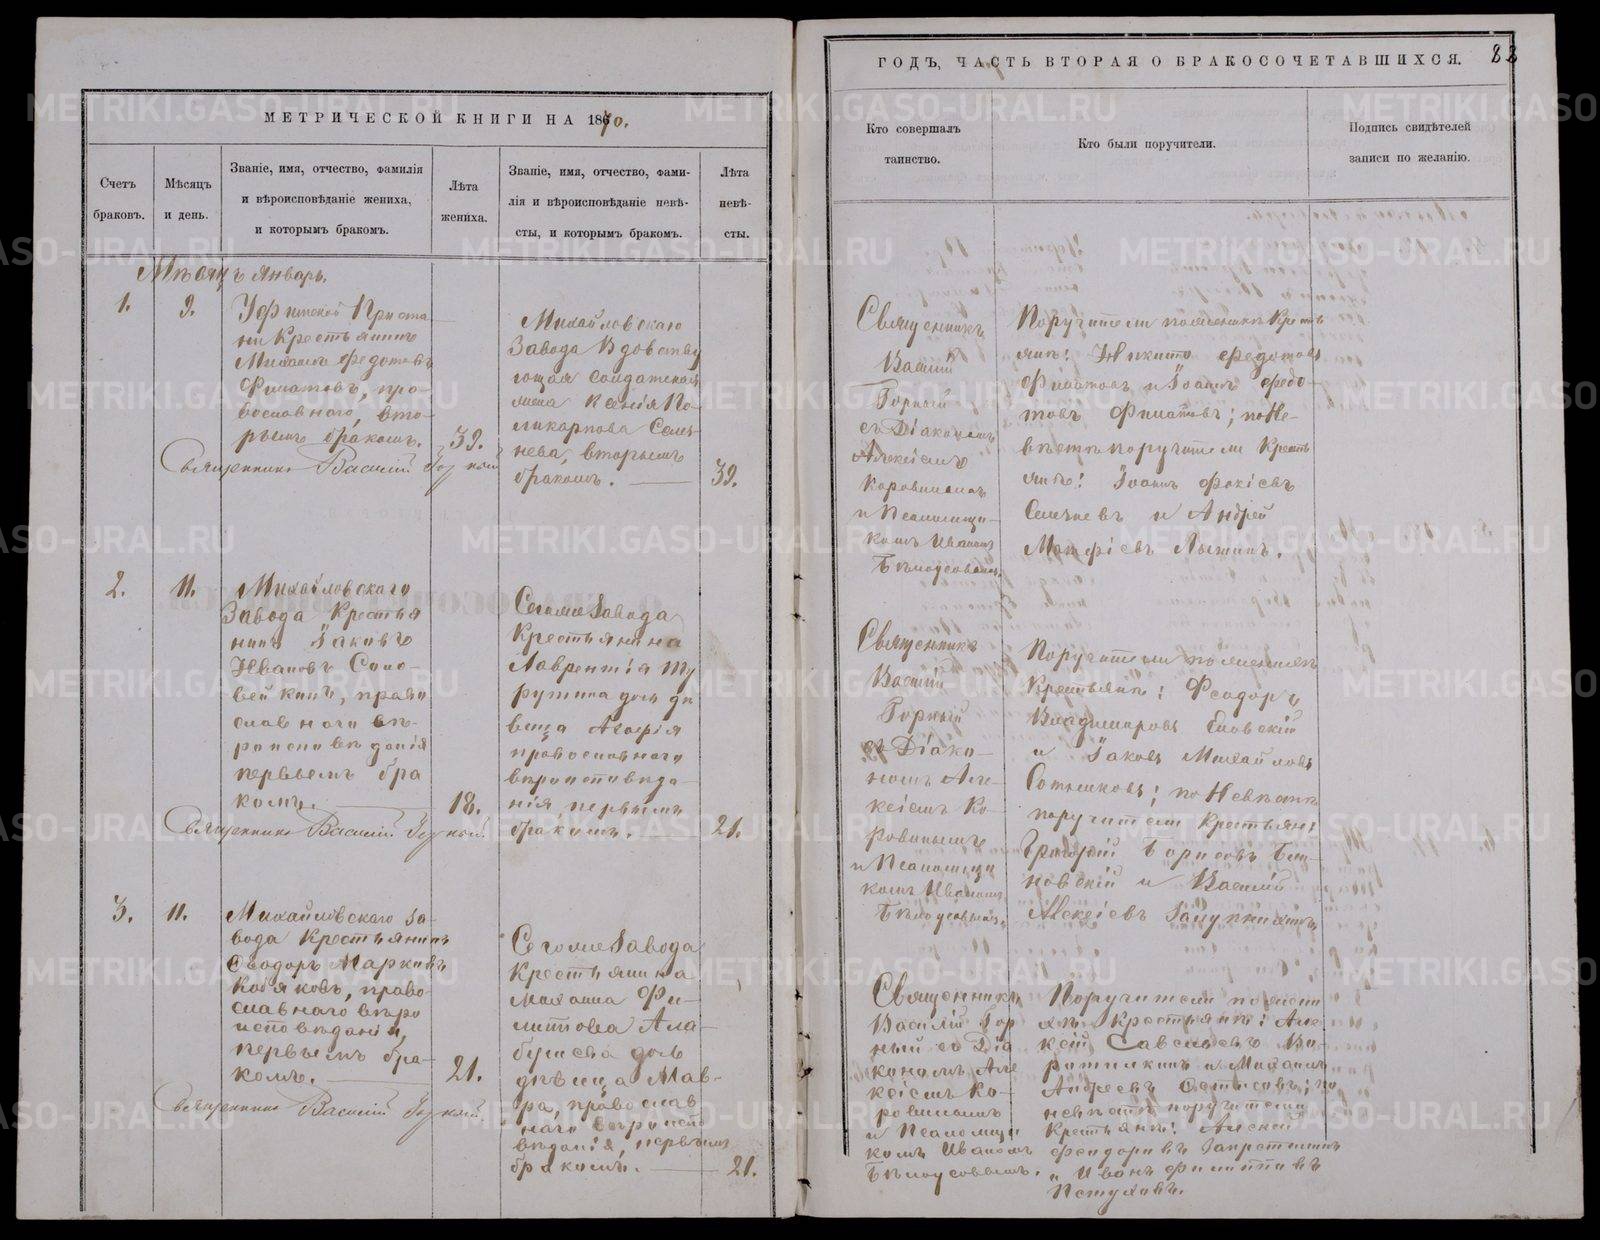 МЕТРИЧЕСКОЙ КНИГИ НА 1870.
Счетъ
браковъ.
Мѣсяцъ
и день.
Званіе, имя, отчество, фамилія
и вѣроисповѣданіе жениха,
и которымъ бракомъ.
Лѣта
жениха.
Званіе, имя, отчество, фами-
лія и вѣроисповѣданіе невѣ-
сты, и которымъ бракомъ.
Лѣта
невѣ-
сты.
Мѣсяцъ Январь.
1.
9.
Уфимской Приста-
ни Крестьянинъ
Михаилъ Федотовъ
Филатовъ, пра-
вославнаго, вто-
рымъ бракомъ.
39.
Священникъ Василій Горный
Михайловскаго
Завода Вдовству
ющая солдатская
жена Ксенія По-
ликарпова Семе-
нева, вторымъ
бракомъ.
39.
2.
11.
Михайловскаго
Завода Крестья
нинъ Іаковъ
Ивановъ Соло-
вейкинъ, право
славнаго вѣ-
роисповѣданія
первымъ бра
комъ.
18.
Священникъ Василій Горный
Сегоже Завода
Крестьянина
Лаврентія
дочь дѣ
вица Агафія
православнаго
вѣроисповѣда-
нія первымъ
бракомъ.
21.
3.
11.
Михайловскаго за-
вода Крестьянинъ
Ѳеодоръ Марковъ
Кобяковъ, право-
славнаго вѣро
исповѣданія,
первымъ бра-
комъ.
21.
Священникъ Василій Горный
Сегоже Завода
Крестьянина
Михаила Фи-
липпова Ала-
бушева дочь
дѣвица Мав-
ра, православ
наго вѣроиспо
вѣданія, первымъ
бракомъ.
21.
ГОДЪ, ЧАСТЬ ВТОРАЯ О БРАКОСОЧЕТАВШИХСЯ.
Кто совершалъ
таинство.
Кто были поручители.
Подпись свидѣтелей
записи по желанію.
Священникъ
Василій
Горный
съ Діакономъ
Алексіемъ
Коровинымъ
и Псаломщи-
комъ Иваномъ
Бѣлоусовымъ.
Поручители по женихѣ Кресть
яне: Никита Федотовъ
Филатовъ и Іоаннъ Федо-
товъ Филатовъ; по Не-
вѣстѣ поручители Кресть
яне: Іоаннъ Фокіевъ
и Андрей
Матфіевъ
Священникъ
Василій
Горный
съ Діако-
номъ Але-
ксіемъ Ко-
ровинымъ
и Псаломщи
комъ Иваномъ
Бѣлоусовымъ.
Поручители по женихѣ
Крестьяне: Феодоръ
Владимировъ
и Іаковъ Михайловъ
Сотниковъ; по Невѣстѣ
поручители Крестьяне:
Григорій Борисовъ
и Василій
Алексіевъ
Священникъ
Василій Гор
ный съ Діа
кономъ Але
ксіемъ Ко-
ровинымъ
и Псаломщи
комъ Иваномъ
Бѣлоусовымъ.
Поручители по жени
хѣ Крестьяне: Але
ксій Савельевъ
и Михаилъ
Андреевъ по
невѣстѣ поручители
Крестьяне: Алексій
Феодоровъ
и Иванъ Филипповъ
Пстуловъ.
METRIKI.GASO-URAL.RU